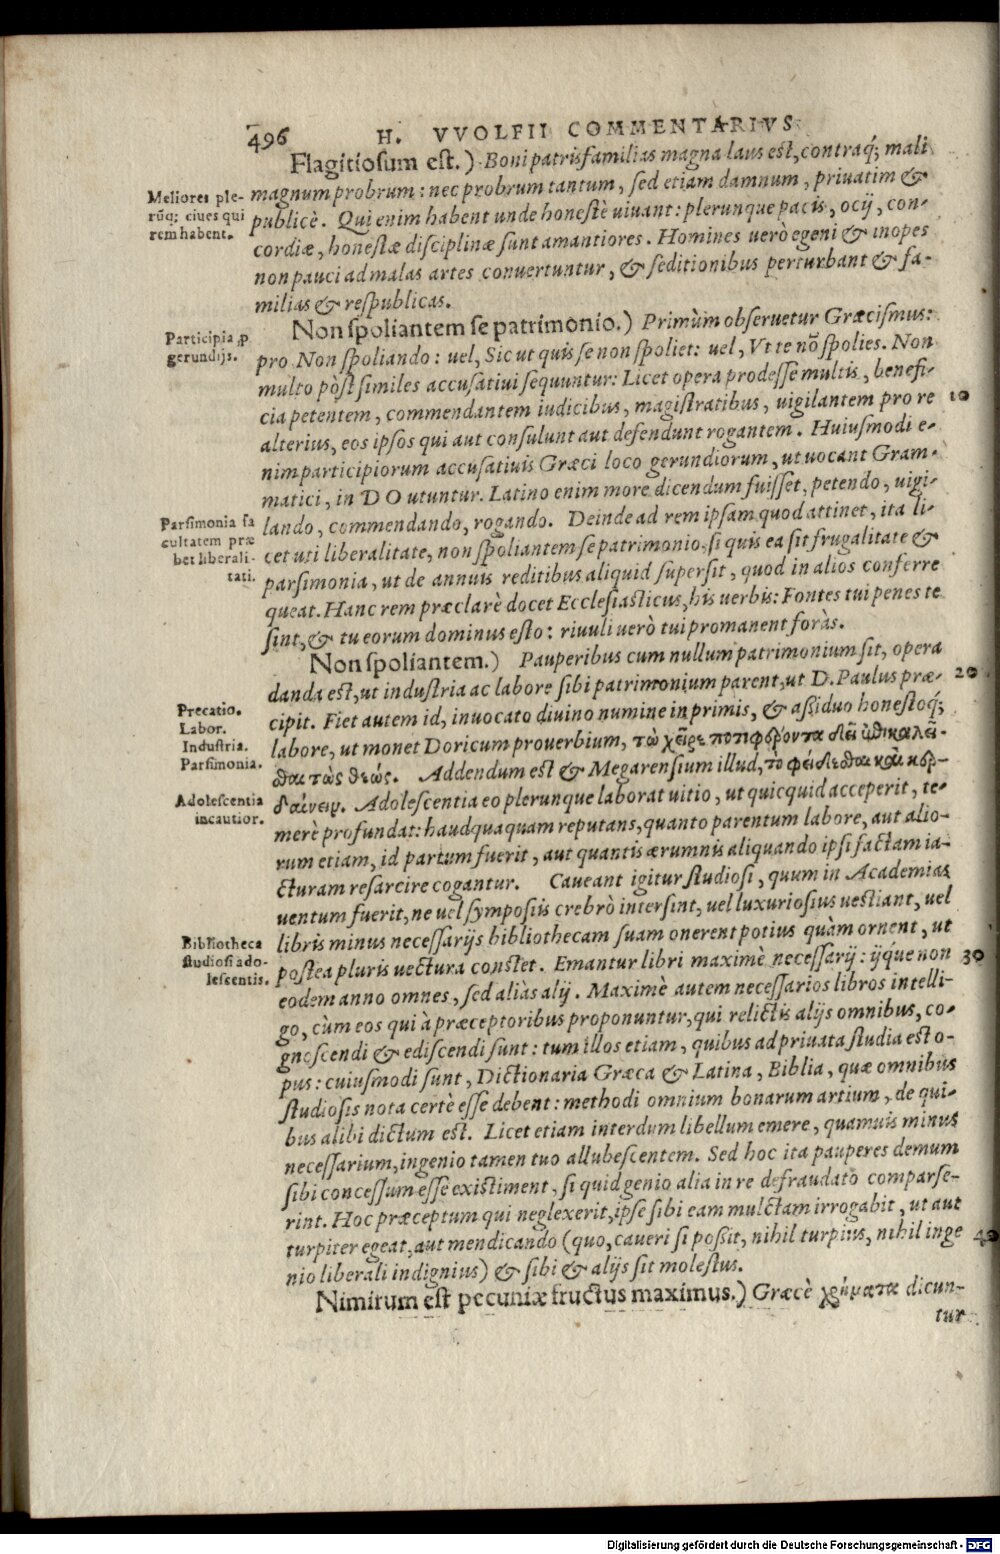 496 H. VVOLFII COMMENTARIVS
Flagitiosum est.) Boni patrisfamilias magna laus est, contraq́; mali
magnum probrum: nec probrum tantum, sed etiam damnum, priuatim &
publicè. Qui enim habent unde honestè uiuant: plerunque pacis, ocij, con-
cordiæ, honestæ disciplinæ sunt amantiores. Homines uerò egeni & inopes
non pauci ad malas artes conuertuntur, & seditionibus perturbant & fa-
milias & respublicas.
Meliores ple-
rūq; ciues qui
rem habent.
Non spoliantem se patrimonio.) Primùm obseruetur Græcismus:
pro Non spoliando: uel, Sic ut quis se non spoliet: uel, Vt te nō spolies. Non
multo pòst similes accusatiui sequuntur: Licet opera prodesse multis, benefi-
cia petentem, commendantem iudicibus, magistratibus, uigilantem pro re
alterius, eos ipsos qui aut consulunt aut defendunt rogantem. Huiusmodi e-
nim participiorum accusatiuis Græci loco gerundiorum, ut uocant Gram-
matici, in DO utuntur. Latino enim more dicendum fuisset, petendo, uigi-
lando, commendando, rogando. Deinde ad rem ipsam quod attinet, ita li-
cet uti liberalitate, non spoliantem se patrimonio, si quis ea sit frugalitate &
parsimonia, ut de annuis reditibus aliquid supersit, quod in alios conferre
queat. Hanc rem præclarè docet Ecclesiasticus, his uerbis: Fontes tui penes te
sint, & tu eorum dominus esto: riuuli uerò tui promanent foràs.
Participia ꝓ
gerundijs.
10
Parsimonia fa
cultatem præ
bet liberali-
tati.
Non spoliantem.) Pauperibus cum nullum patrimonium sit, opera
danda est, ut industria ac labore sibi patrimonium parent, ut D. Paulus præ-
cipit. Fiet autem id, inuocato diuino numine in primis, & aßiduo honestoq́;
labore, ut monet Doricum prouerbium, τὼ χεῖρε ποτιφέροντα δεῖ
θαι τὼς θεώς. Addendum est & Megarensium illud, τὸ φείδεσθαι καὶ κερ-
δαίνειν. Adolescentia eo plerunque laborat uitio, ut quicquid acceperit, te-
merè profundat: haudquaquam reputans, quanto parentum labore, aut alio-
rum etiam, id partum fuerit, aut quantis ærumnis aliquando ipsi factam ia-
cturam resarcire cogantur. Caueant igitur studiosi, quum in Academias
uentum fuerit, ne uel symposiis crebrò intersint, uel luxuriosius uestiant, uel
libris minus necessarijs bibliothecam suam onerent potius quàm ornent, ut
postea pluris uectura constet. Emantur libri maximè necessarij: ijque non
eodem anno omnes, sed aliàs alij. Maximè autem necessarios libros intelli-
go, cùm eos qui à præceptoribus proponuntur, qui relictis alijs omnibus, co-
gnoscendi & ediscendi sunt: tum illos etiam, quibus ad priuata studia est o-
pus: cuiusmodi sunt, Dictionaria Græca & Latina, Biblia, quæ omnibus
studiosis nota certè esse debent: methodi omnium bonarum artium, de qui-
bus alibi dictum est. Licet etiam interdum libellum emere, quamuis minus
necessarium, ingenio tamen tuo allubescentem. Sed hoc ita pauperes demum
sibi concessum esse existiment, si quid genio alia in re defraudato comparse-
rint. Hoc præceptum qui neglexerit, ipse sibi eam mulctam irrogabit, ut aut
turpiter egeat, aut mendicando (quo, caueri si poßit, nihil turpius, nihil inge
nio liberali indignius) & sibi & alijs sit molestus.
20
Precatio.
Labor.
Industria.
Parsimonia.
Adolescentia
incautior.
Bibliotheca
studiosi ado-
lescentis.
30
40
Nimirum est pecuniæ fructus maximus.) Græcè χρήματα dicun-
tur
Digitalisierung gefördert durch die Deutsche Forschungsgemeinschaft - DFG